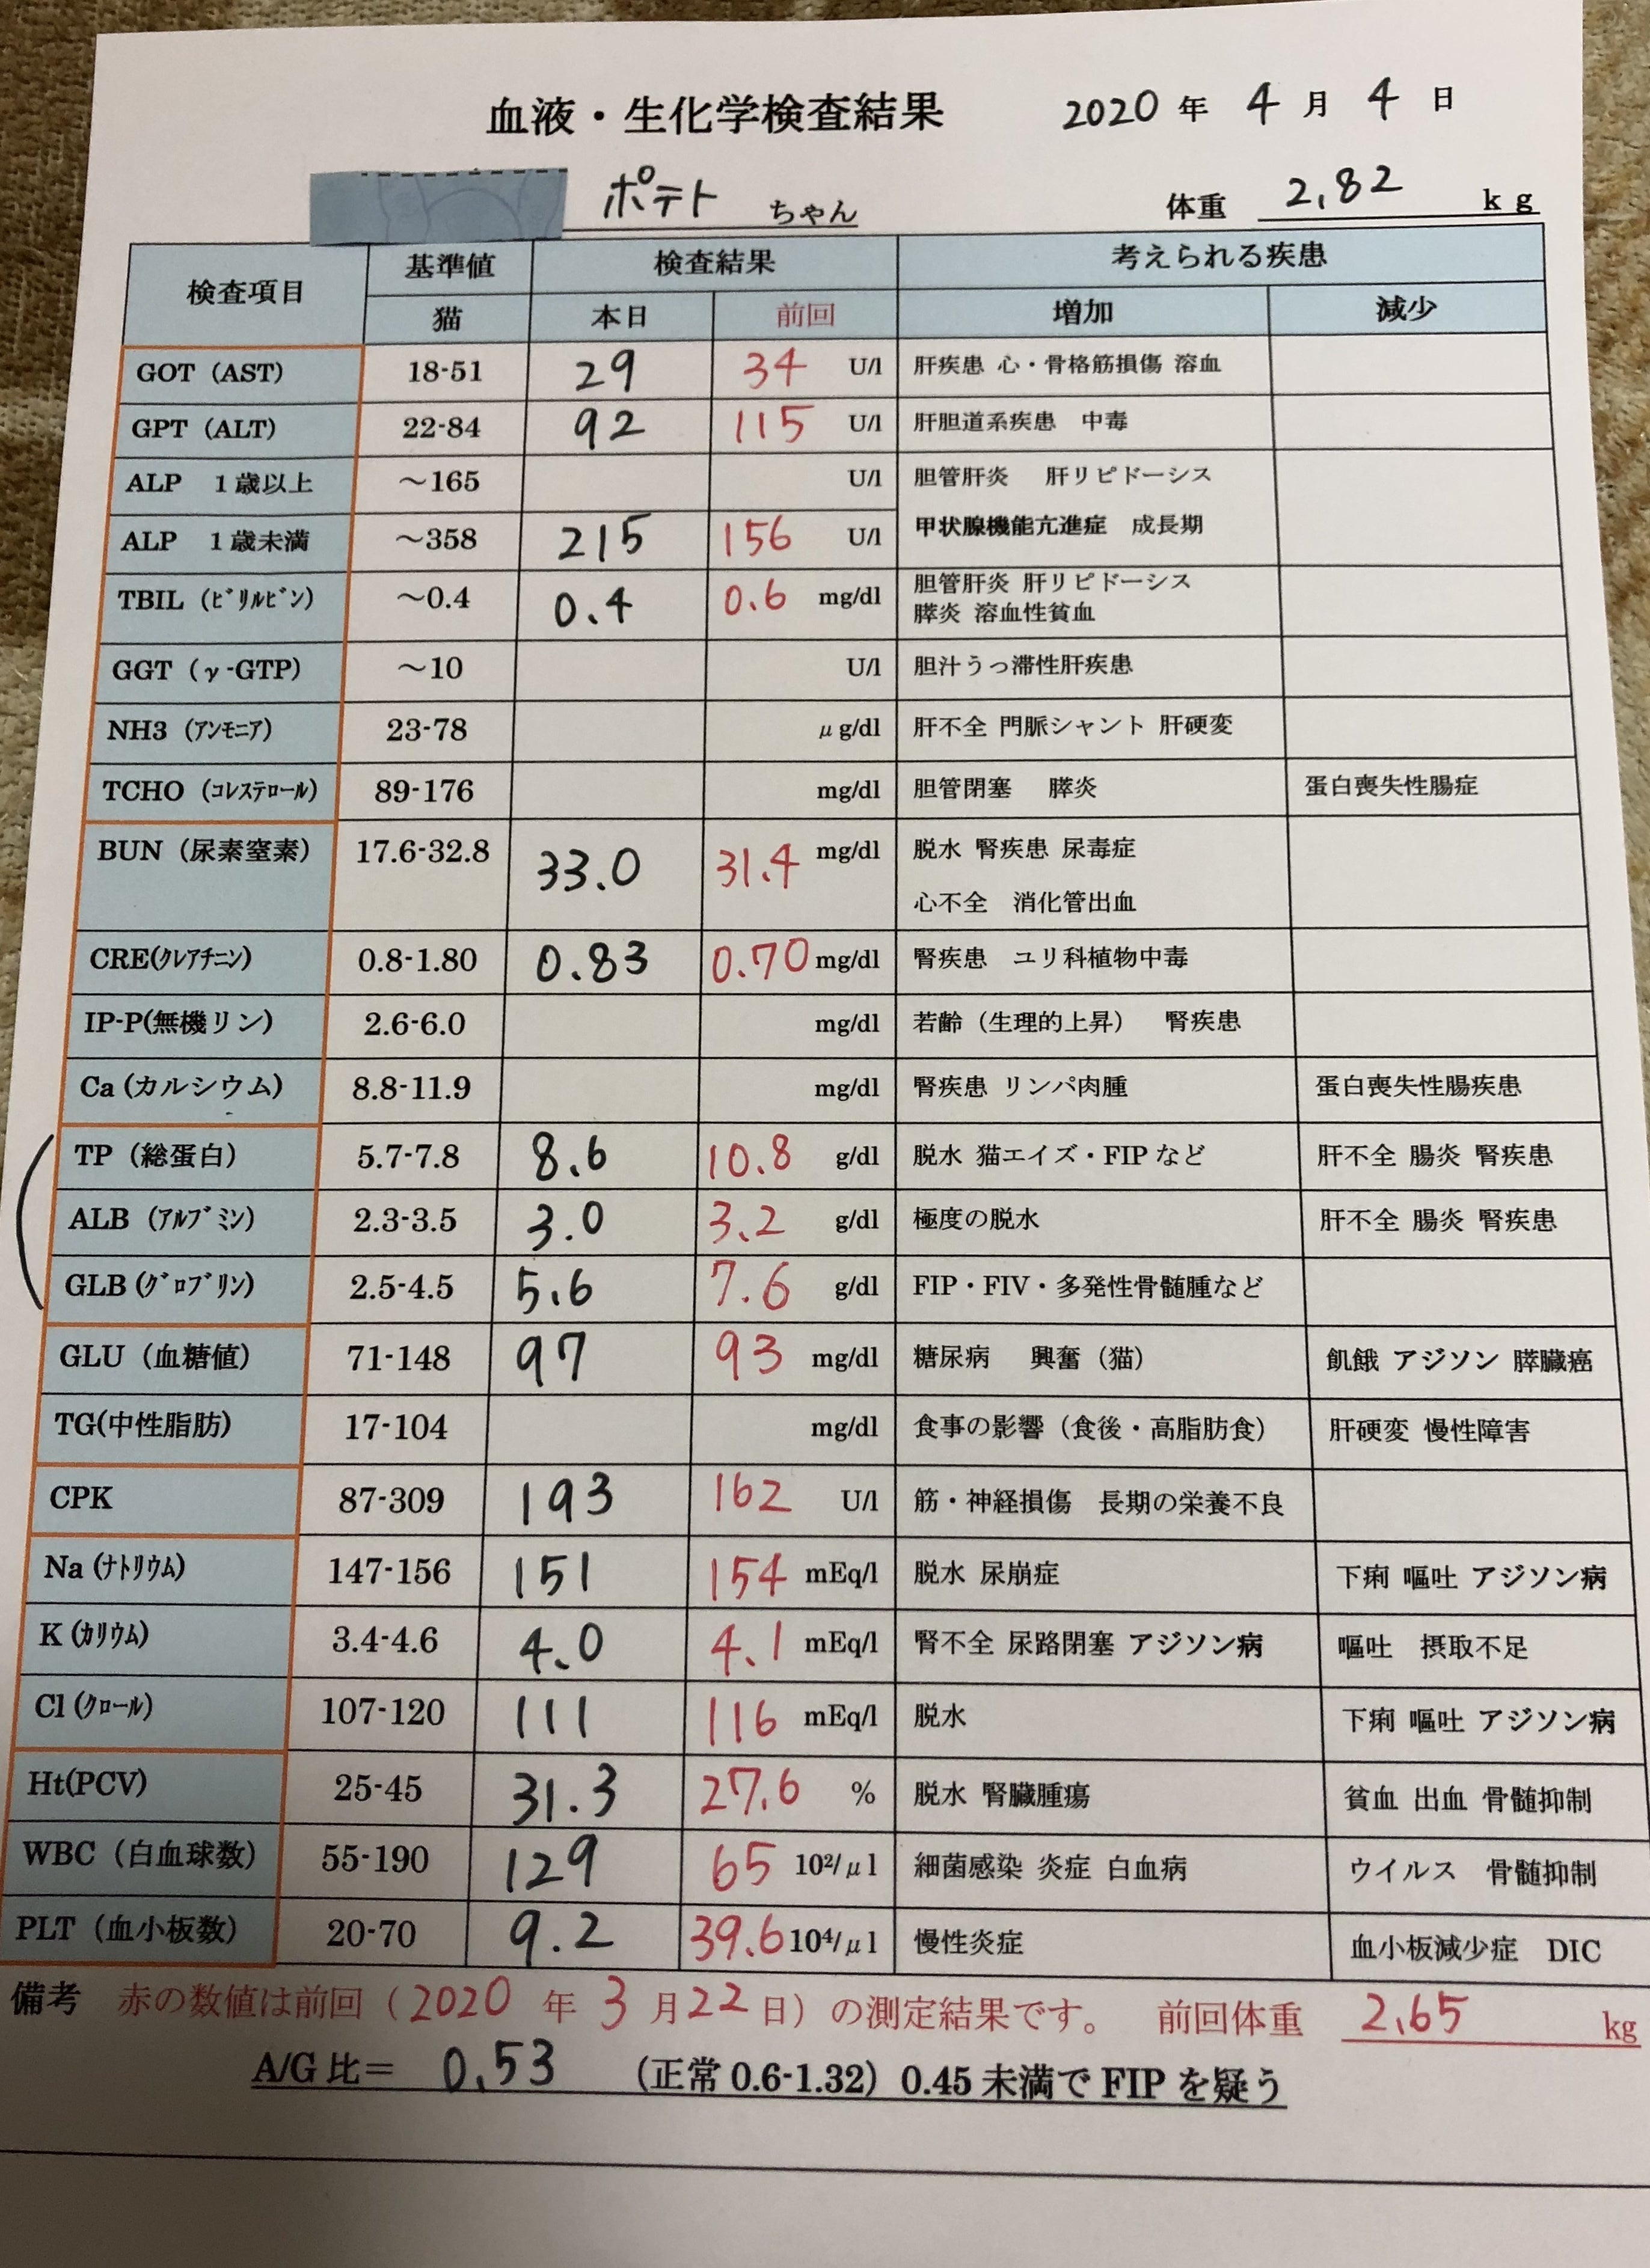 血液・生化学検査結果 2020 年 4 月 4 日
ポテト ちゃん 体重 2.82 kg
検査項目 基準値 検査結果 考えられる疾患
猫 本日 前回 増加 減少
GOT (AST) 18-51 29 34 U/l 肝疾患 心・骨格筋損傷 溶血
GPT (ALT) 22-84 92 115 U/l 肝胆道系疾患 中毒
ALP 1歳以上 ～165 U/l 胆管肝炎 肝リピドーシス
ALP 1歳未満 ～358 215 156 U/l 甲状腺機能亢進症 成長期
TBIL (ﾋﾞﾘﾙﾋﾞﾝ) ～0.4 0.4 0.6 mg/dl 胆管肝炎 肝リピドーシス
膵炎 溶血性貧血
GGT (γ-GTP) ～10 U/l 胆汁うっ滞性肝疾患
NH3 (ｱﾝﾓﾆｱ) 23-78 μg/dl 肝不全 門脈シャント 肝硬変
TCHO (ｺﾚｽﾃﾛｰﾙ) 89-176 mg/dl 胆管閉塞 膵炎 蛋白喪失性腸症
BUN (尿素窒素) 17.6-32.8 33.0 31.4 mg/dl 脱水 腎疾患 尿毒症
心不全 消化管出血
CRE(ｸﾚｱﾁﾆﾝ) 0.8-1.80 0.83 0.70 mg/dl 腎疾患 ユリ科植物中毒
IP-P(無機リン) 2.6-6.0 mg/dl 若齢（生理的上昇） 腎疾患
Ca (カルシウム) 8.8-11.9 mg/dl 腎疾患 リンパ肉腫 蛋白喪失性腸疾患
TP (総蛋白) 5.7-7.8 8.6 10.8 g/dl 脱水 猫エイズ・FIP など 肝不全 腸炎 腎疾患
ALB (ｱﾙﾌﾞﾐﾝ) 2.3-3.5 3.0 3.2 g/dl 極度の脱水 肝不全 腸炎 腎疾患
GLB (ｸﾞﾛﾌﾞﾘﾝ) 2.5-4.5 5.6 7.6 g/dl FIP・FIV・多発性骨髄腫など
GLU (血糖値) 71-148 97 93 mg/dl 糖尿病 興奮（猫） 飢餓 アジソン 膵臓癌
TG(中性脂肪) 17-104 mg/dl 食事の影響（食後・高脂肪食） 肝硬変 慢性障害
CPK 87-309 193 162 U/l 筋・神経損傷 長期の栄養不良
Na (ﾅﾄﾘｳﾑ) 147-156 151 154 mEq/l 脱水 尿崩症 下痢 嘔吐 アジソン病
K (ｶﾘｳﾑ) 3.4-4.6 4.0 4.1 mEq/l 腎不全 尿路閉塞 アジソン病 嘔吐 摂取不足
Cl (ｸﾛｰﾙ) 107-120 111 116 mEq/l 脱水 下痢 嘔吐 アジソン病
Ht(PCV) 25-45 31.3 27.6 % 脱水 腎臓腫瘍 貧血 出血 骨髄抑制
WBC (白血球数) 55-190 129 65 10²/μl 細菌感染 炎症 白血病 ウイルス 骨髄抑制
PLT (血小板数) 20-70 9.2 39.6 10⁴/μl 慢性炎症 血小板減少症 DIC
備考 赤の数値は前回（2020 年 3 月 22 日）の測定結果です。 前回体重 2.65 kg
A/G 比＝ 0.53 （正常 0.6-1.32）0.45 未満で FIP を疑う